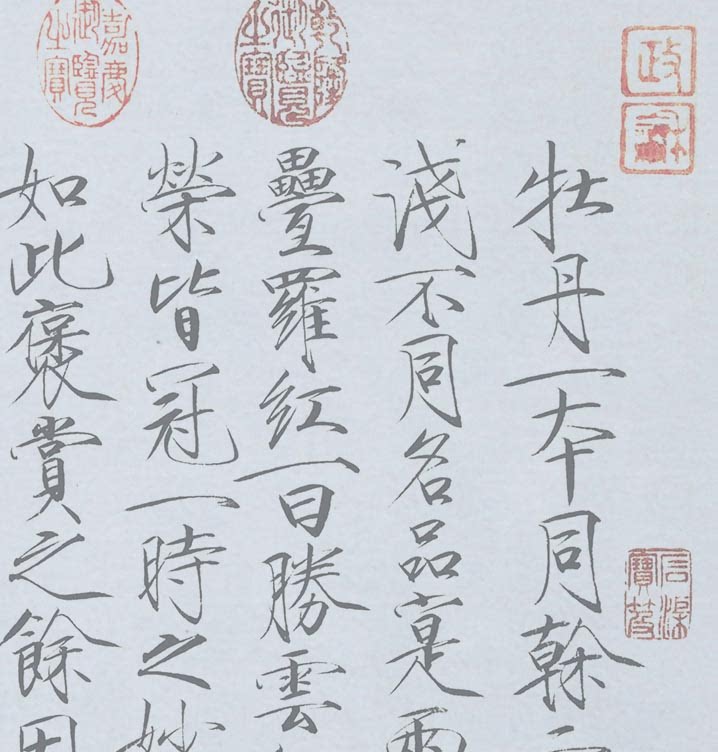 政
和
牡丹一本同榦二
淺不同名品寔兩
乾隆御覽之寶
疊羅紅一曰勝雲
嘉慶御覽之寶
榮皆冠一時之妙
如此褒賞之餘因